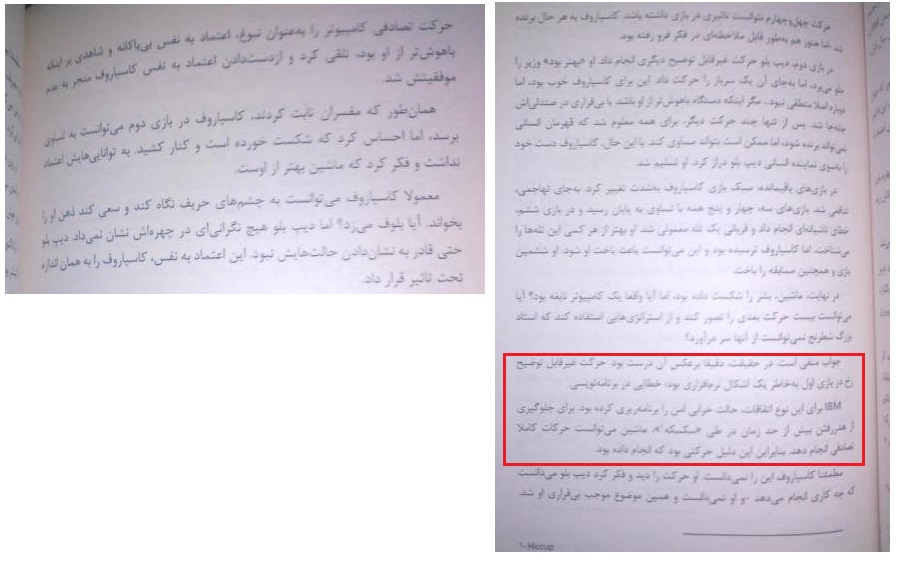 حرکت چهل‌وچهارم نتوانست تاثیری در بازی داشته باشد. کاسپاروف به هر حال برنده
شد. اما هنوز هم به‌طور قابل ملاحظه‌ای در فکر فرو رفته بود.
در بازی دوم، دیپ بلو حرکت غیرقابل توضیح دیگری انجام داد. او «بهتر بود» وزیر را
جلو می‌برد، اما به‌جای آن یک سرباز را حرکت داد. این برای کاسپاروف خوب بود، اما
دوباره اصلا منطقی نبود... مگر اینکه دستگاه باهوش‌تر از او باشد. با بی‌قراری در صندلی‌اش
جابه‌جا شد. پس از تنها چند حرکت دیگر، برای همه معلوم شد که قهرمان انسانی
نمی‌تواند برنده شود، اما ممکن است بتواند مساوی کند. با این حال، کاسپاروف دست خود
را به‌سوی نماینده انسانی دیپ بلو دراز کرد. او تسلیم شد.
در بازی‌های باقیمانده، سبک بازی کاسپاروف به‌شدت تغییر کرد. به‌جای تهاجمی،
تدافعی شد. بازی‌های سه، چهار و پنج همه با تساوی به پایان رسید و در بازی ششم،
خطای ناشیانه‌ای انجام داد و قربانی یک تله معمولی شد. او بهتر از هر کسی این تله‌ها را
می‌شناخت، اما کاسپاروف ترسیده بود و این می‌توانست باعث باخت او شود. او ششمین
بازی و همچنین مسابقه را باخت.
در نهایت، ماشین، بشر را شکست داده بود، اما آیا واقعا یک کامپیوتر نابغه بود؟ آیا
می‌توانست بیست حرکت بعدی را تصور کند و از استراتژی‌هایی استفاده کند که استاد
بزرگ شطرنج نمی‌توانست از آنها سر درآورد؟
جواب منفی است. در حقیقت، دقیقا برعکس آن درست بود. حرکت غیرقابل توضیح
رخ در بازی اول به‌خاطر یک اشکال نرم‌افزاری بود؛ خطایی در برنامه‌نویسی.
IBM برای این نوع اتفاقات، حالت خرابی امن را برنامه‌ریزی کرده بود. برای جلوگیری
از هدررفتن بیش از حد زمان در طی «سکسکه۱»، ماشین می‌توانست حرکات کاملا
تصادفی انجام دهد. بنابراین این دلیل حرکتی بود که انجام داده بود.
مطمئنا کاسپاروف این را نمی‌دانست. او حرکت را دید و فکر کرد دیپ بلو می‌دانست
که چه کاری انجام می‌دهد -و او نمی‌دانست و همین موضوع موجب بی‌قراری او شد.
۱- Hiccup
حرکت تصادفی کامپیوتر را به‌عنوان نبوغ، اعتماد به نفس بی‌باکانه و شاهدی بر اینکه
باهوش‌تر از او بود، تلقی کرد و ازدست‌دادن اعتماد به نفس کاسپاروف منجر به عدم
موفقیتش شد.
همان‌طور که مفسران ثابت کردند، کاسپاروف در بازی دوم می‌توانست به تساوی
برسد، اما احساس کرد که شکست خورده است و کنار کشید. به توانایی‌هایش اعتماد
نداشت و فکر کرد که ماشین بهتر از اوست.
معمولا کاسپاروف می‌توانست به چشم‌های حریف نگاه کند و سعی کند ذهن او را
بخواند. آیا بلوف می‌زد؟ اما دیپ بلو هیچ نگرانی‌ای در چهره‌اش نشان نمی‌داد. دیپ بلو
حتی قادر به نشان‌دادن حالت‌هایش نبود. این اعتماد به نفس، کاسپاروف را به همان اندازه
تحت تاثیر قرار داد.